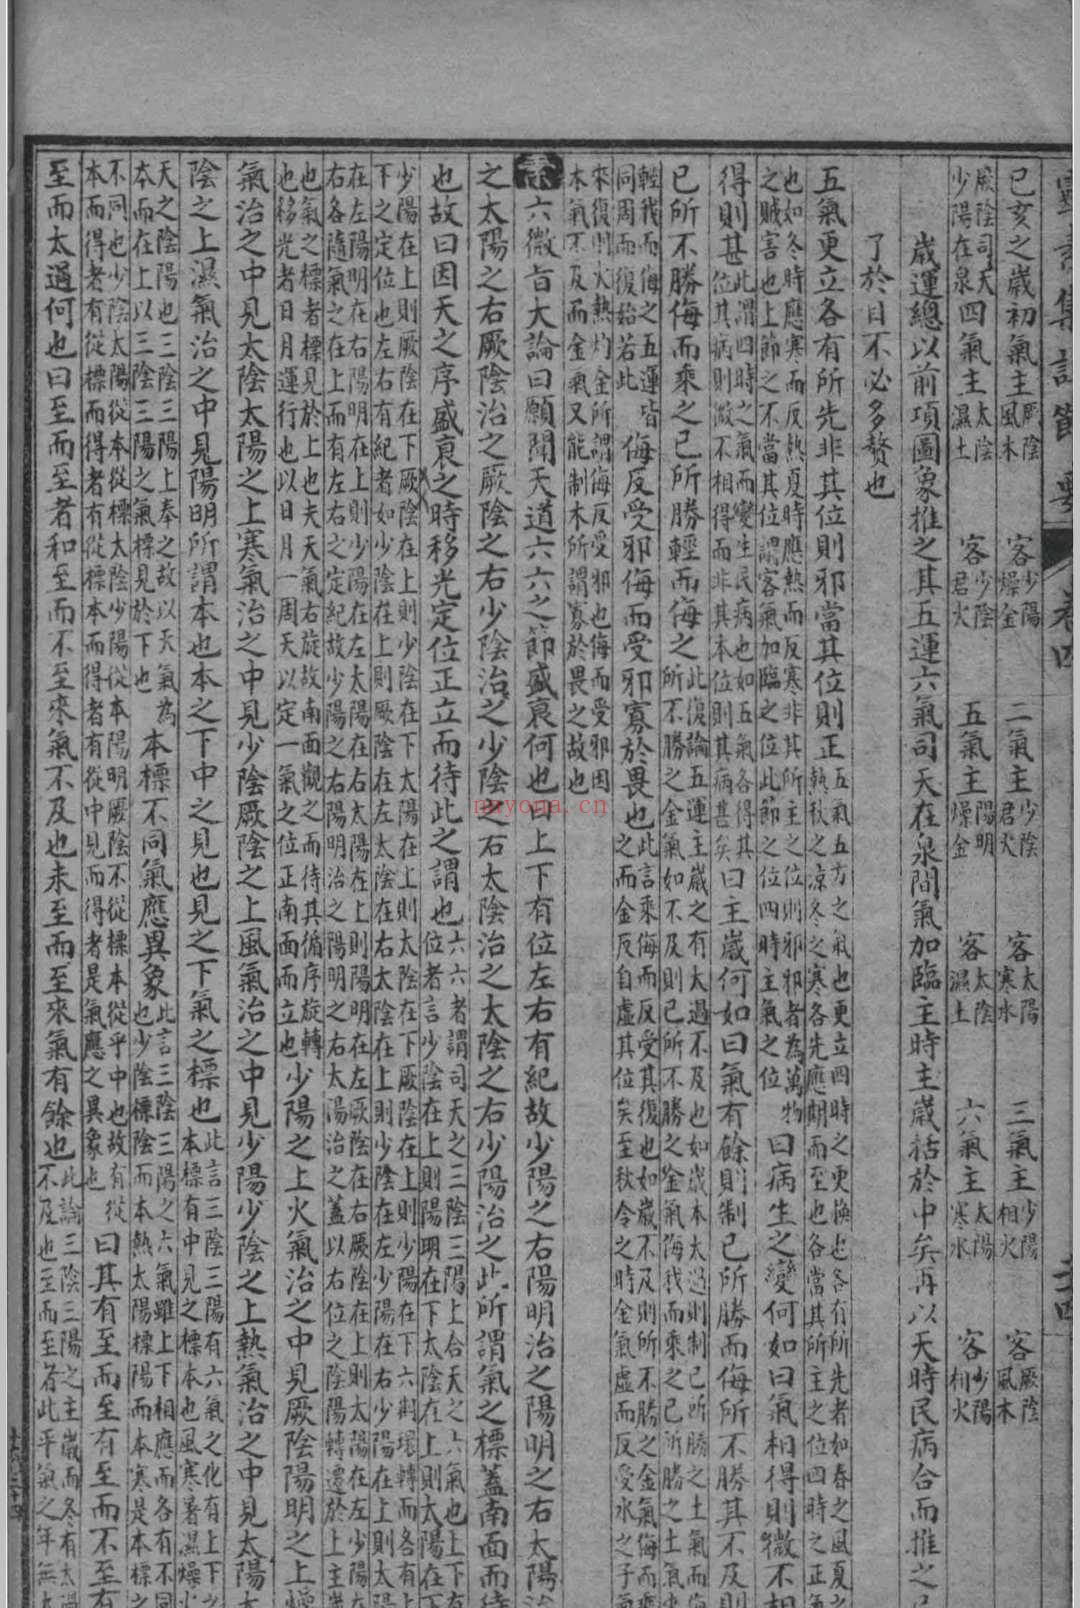 靈素集註節要 卷四 二四
己亥之歲初氣主厥陰風木 客少陽燥金 二氣主少陰君火 客太陽寒水 三氣主少陽相火 客厥陰風木
厥陰司天少陽在泉四氣主太陰濕土 客少陰君火 五氣主陽明燥金 客太陰濕土 六氣主太陽寒水 客少陽相火
歲運總以前項圖象推之其五運六氣司天在泉間氣加臨主時主歲括於中矣再以天時民病合而推之
了於目不必多贅也
五氣更立各有所先非其位則邪當其位則正五氣五方之氣也更立四時之更換也各有所先者如春之風夏之熱秋之涼冬之寒各先應期而至也各當其所主之位四時之正氣
也如冬時應寒而反熱夏時應熱而反寒非其所主之位則邪邪者為萬物之賊害也上節之不當其位謂客氣加臨之位此節之位四時主氣之位曰病生之變何如曰氣相得則微不相
得則甚此謂四時之氣而變生民病也如五氣各得其位其病則微不相得而非其本位則其病甚矣曰主歲何如曰氣有餘則制己所勝而侮所不勝其不及則
己所不勝侮而乘之己所勝輕而侮之此復論五運主歲之有太過不及也如歲木太過則制己所勝之土氣而所不勝之金氣如不及則己所不勝之金氣侮我而乘之己所勝之土氣
輕我而侮之五運皆同周而復始若此侮反受邪侮而受邪寡於畏也此言乘侮而反受其復也如歲不及則所不勝之金氣侮而之而金反自虛其位矣至秋令之時金氣虛而反受水之子氣
來復則火熱灼金所謂侮反受邪也侮而受邪因木氣不及而金氣又能制木所謂寡於畏之故也
素六微旨大論曰願聞天道六六之節盛衰何也曰上下有位左右有紀故少陽之右陽明治之陽明之右太陽治
之太陽之右厥陰治之厥陰之右少陰治之少陰之右太陰治之太陰之右少陽治之此所謂氣之標蓋南面而待
也故曰因天之序盛衰之時移光定位正立而待此之謂也六六者謂司天之三陰三陽上合天之六氣也上下有位者言少陰在上則陽明在下太陰在上則太陽在下
少陽在上則厥陰在下厥陰在上則少陽在下太陽在上則太陰在下厥陰在上則少陽在下六期環轉而各有上下之定位也左右有紀者如少陰在上則厥陰在左太陰在右太陰在上則少陰在左少陽在右少陽在上則太陰
在左陽明在右陽明在上則少陽在左太陽在右太陽在上則陽明在左厥陰在右厥陰在上則太陽在左少陰在右各隨氣之在上而有左右之定紀故少陽之右陽明治之陽明之右太陽治之蓋以右位之陰陽轉遷於上主歲
也氣之標者標見於上也夫天氣右旋故南面觀之而待其循序旋轉也移光者日月運行也以日月一周天以定一氣之位正南面而立也少陽之上火氣治之中見厥陰陽明之上燥
氣治之中見太陰太陽之上寒氣治之中見少陰厥陰之上風氣治之中見少陽少陰之上熱氣治之中見太陽
陰之上濕氣治之中見陽明所謂本也本之下中之見也見之下氣之標也此言三陰三陽有六氣之化有上下之本標有中見之標本也風寒暑濕燥火
天之陰陽也三陰三陽上奉之故以天氣為本而在上以三陰三陽之氣標見於下也本標不同氣應異象此言三陰三陽之六氣雖上下相應而各有不同也少陰標陰而本熱太陽標陽而本寒是本標之
不同也少陰太陽從本從標太陰少陽從本陽明厥陰不從標本從乎中也故有從本而得者有從標而得者有從標本而得者有從中見而得者是氣應之異象也曰其有至而至有至而不至有
至而太過何也曰至而至者和至而不至來氣不及也未至而至來氣有餘也此論三陰三陽之主歲而冬有太過不及也至而至者此平氣之年無